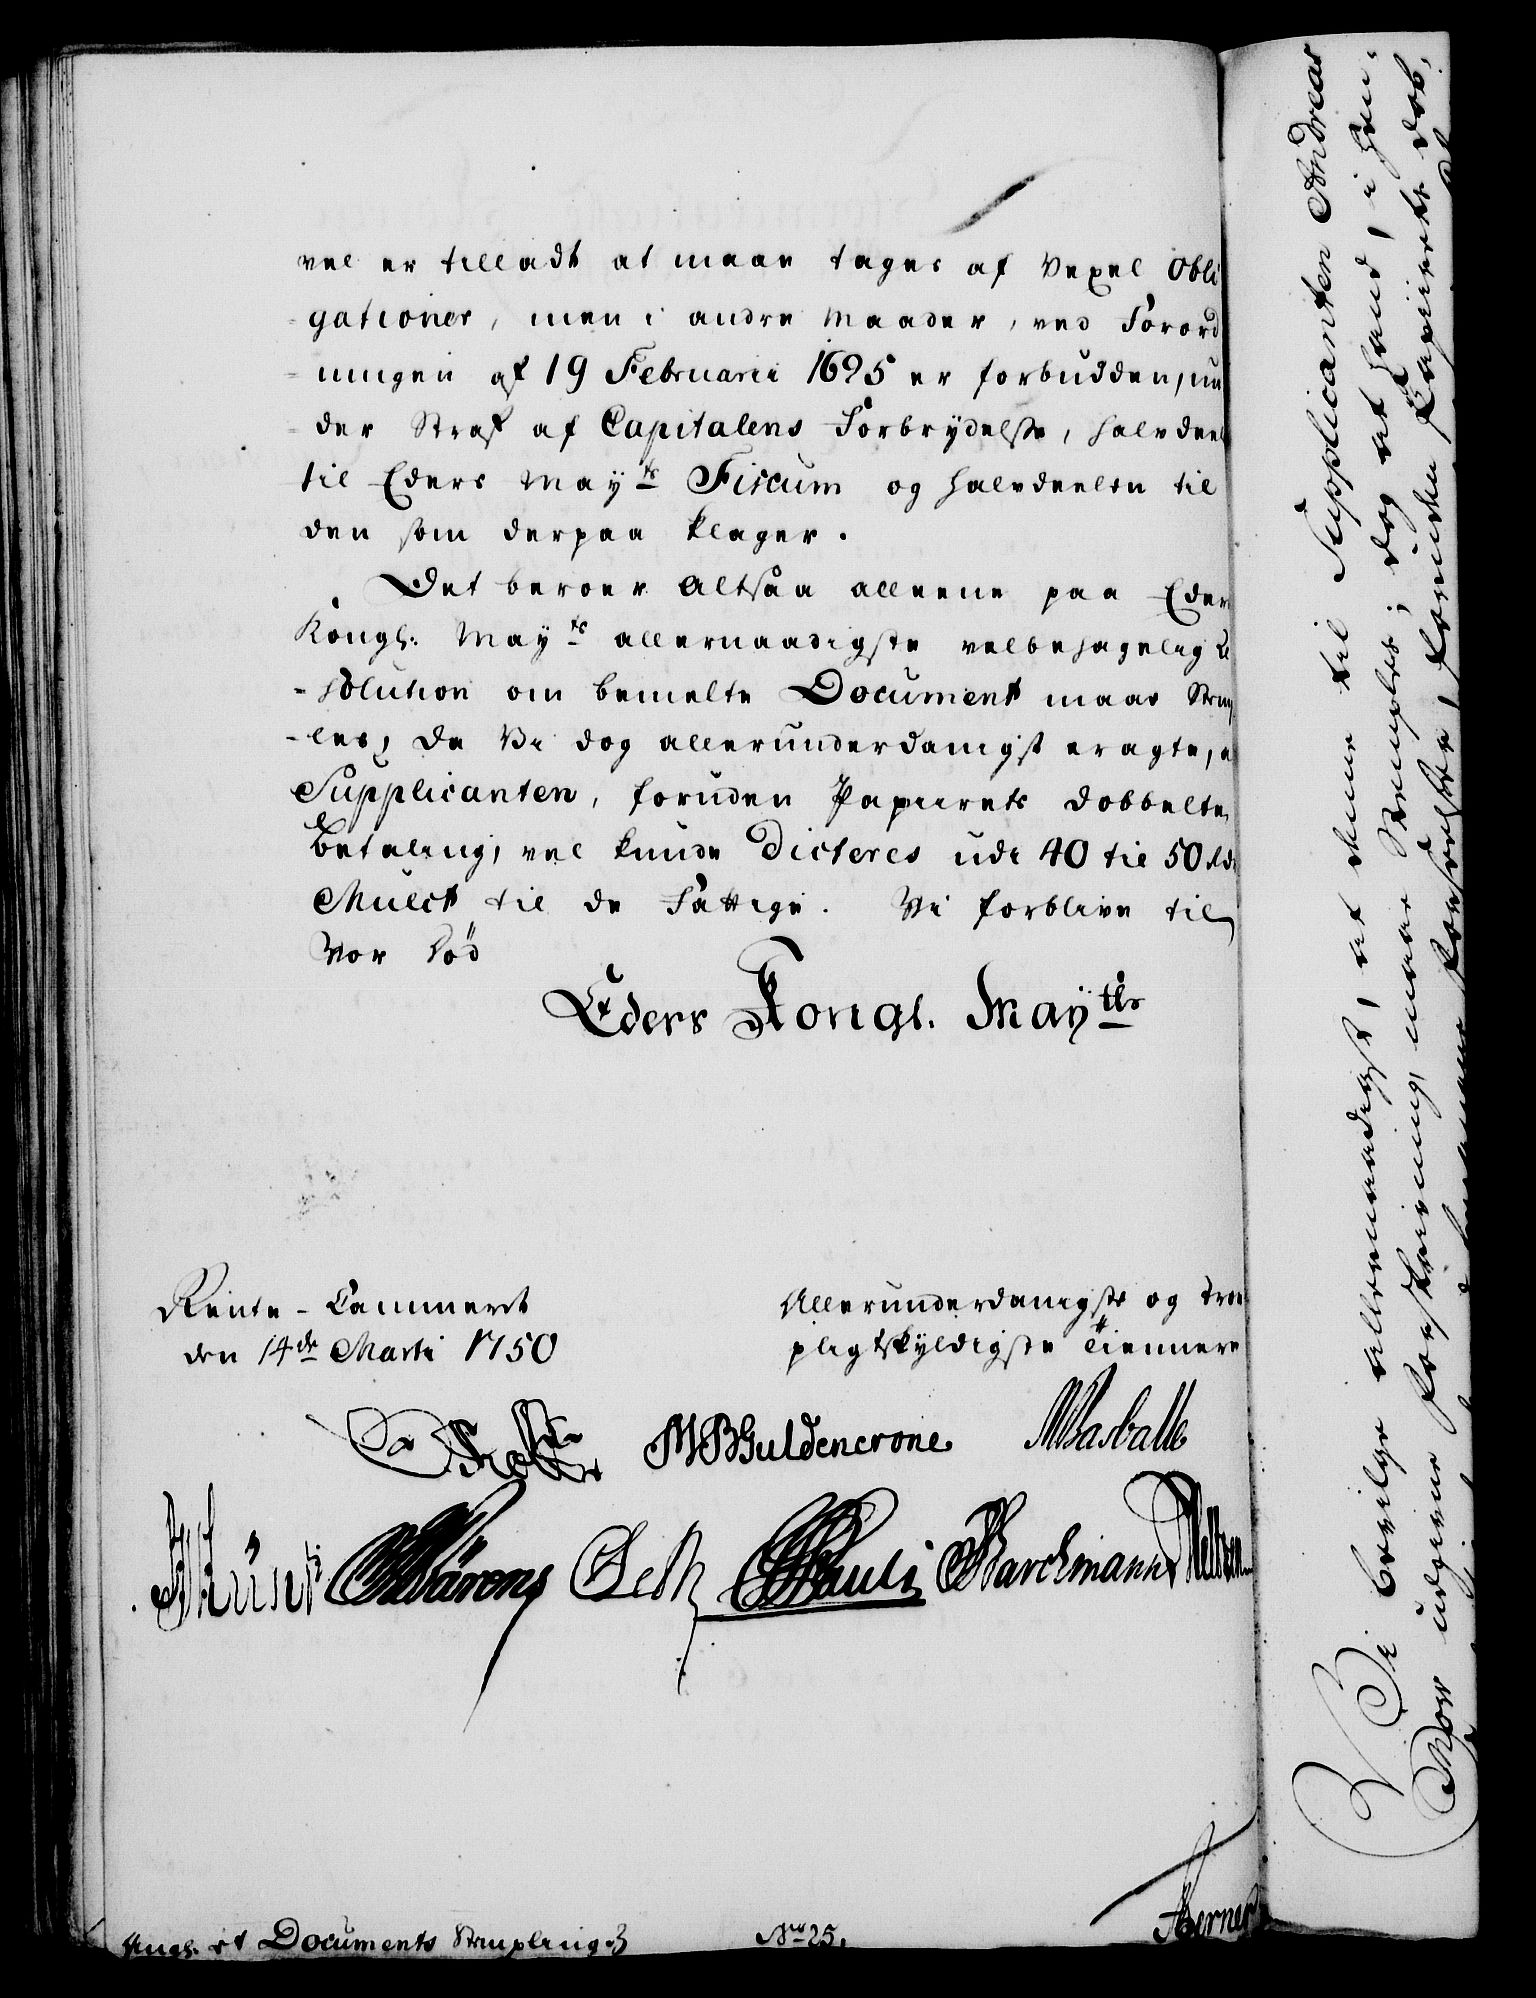 vel er tilladt at maae tages af Vexel Obli
-gationer, men i andre Maader, ved Forord
-ningen af 19 Februarii 1695 er forbudden, un
-der Straf af Capitalens Forbrydelse, halvdeel
til Eders May.ts Fiscum og halvdeelen til
den som derpaa klager.
Det beroer altsaa alleene paa Eders
Kongl. May.ts allernaadigste velbehagelig Re
-solution om bemelte Document maae Stemp
-les, da Vi dog allerunderdanigst eragte, at
Supplicanten, foruden Papiirets dobbelte
Betaling, vel kunde Dicteres udi 40 til 50 Rdr
Mulct til de Fattige. Vi forblive til
Vor Død
Eders Kongl. May.tts
Rente-Cammeret
den 14de Martii 1750
Allerunderdanigste og troe
pligtskyldigste Tiennere
MBGuldencrone Basballe
Münt Wärens Selk Pauli Barchmann
Angl. et Documents Stempling
No 25.
Berner
Vi bevilge allernaadigst, at denne til Supplicanten Andreas
udgivne Forskrivning, maae Stemples; dog at hand, i Hen-